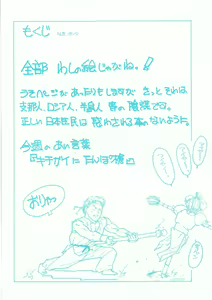 もくじ
全部 わしの絵じゃがね。!
うそページがあったりもしますが きっと それは
支那人、ロシア人、半島人 等の陰謀です。
正しい日本臣民は 惑わされる事のないように。
今週のあい言葉
『キチガイに たんぽ槍』
おりゃ